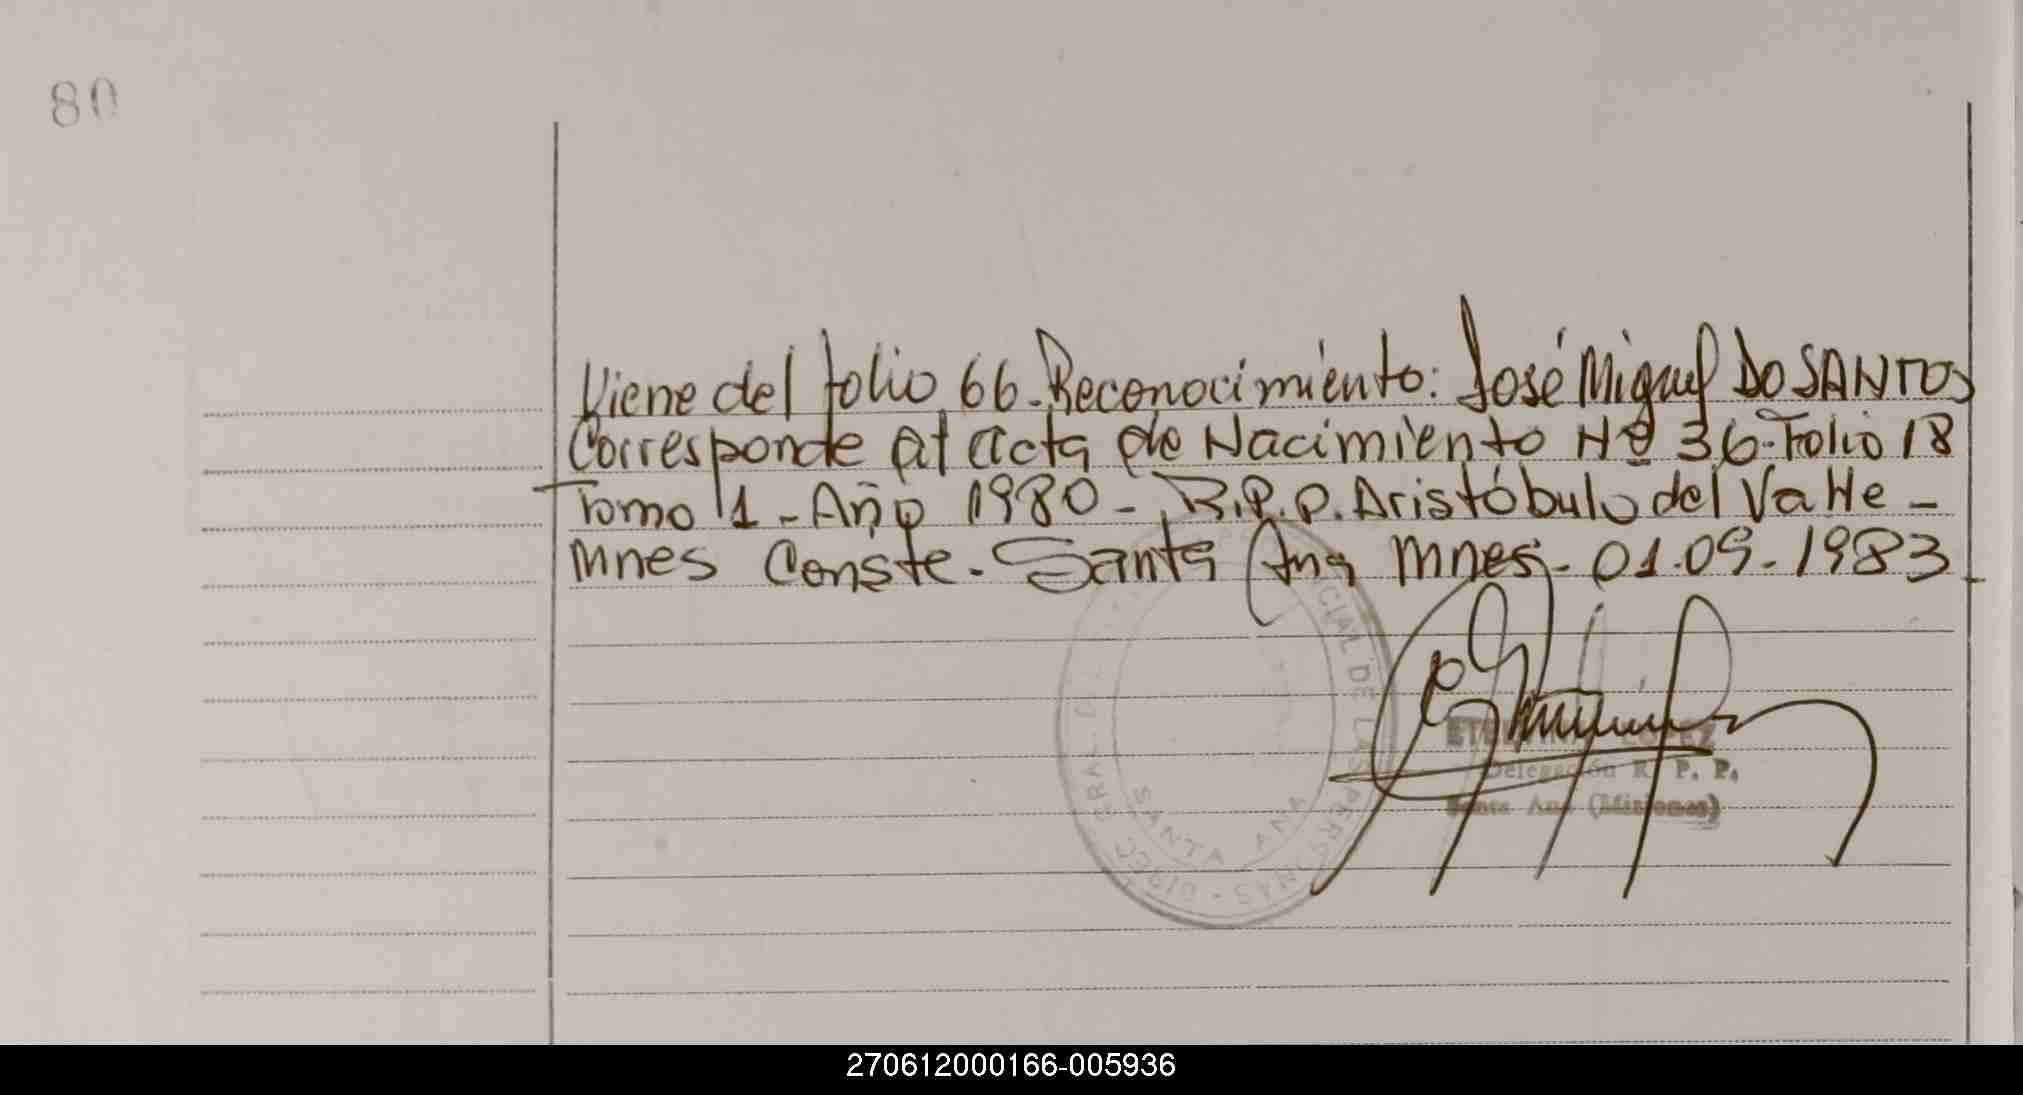 80
Viene del folio 66. Reconocimiento: José Miguel DO SANTOS
Corresponde al acta de Nacimiento Nº 36. Folio 18
Tomo 1 - Año 1980 - R.P.P. Aristóbulo del Valle -
Mnes Conste. Santa Ana Mnes - 01.09.1983
CIAL DE LAS PERSONAS
SANTA ANA
Delegación R. P. P.
Santa Ana (Misiones)
270612000166-005936